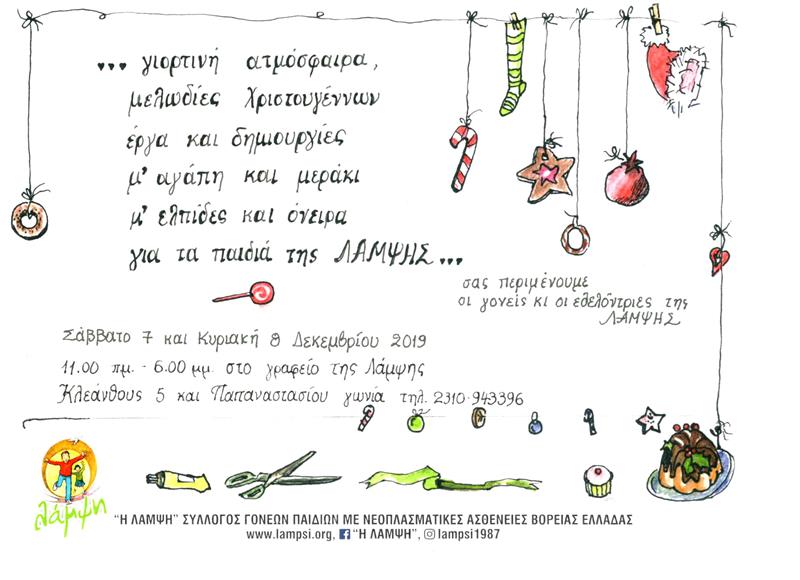 ... γιορτινή ατμόσφαιρα,
μελωδίες Χριστουγέννων
έργα και δημιουργίες
μ' αγάπη και μεράκι
μ' ελπίδες και όνειρα
για τα παιδιά της ΛΑΜΨΗΣ...
σας περιμένουμε
οι γονείς κι οι εθελόντριες της
ΛΑΜΨΗΣ
Σάββατο 7 και Κυριακή 8 Δεκεμβρίου 2019
11.00 πμ. - 6.00 μμ. στο γραφείο της Λάμψης
Κλεάνθους 5 και Παπαναστασίου γωνία τηλ. 2310-943396
λάμψη
"Η ΛΑΜΨΗ" ΣΥΛΛΟΓΟΣ ΓΟΝΕΩΝ ΠΑΙΔΙΩΝ ΜΕ ΝΕΟΠΛΑΣΜΑΤΙΚΕΣ ΑΣΘΕΝΕΙΕΣ ΒΟΡΕΙΑΣ ΕΛΛΑΔΑΣ
www.lampsi.org, "Η ΛΑΜΨΗ", lampsi1987